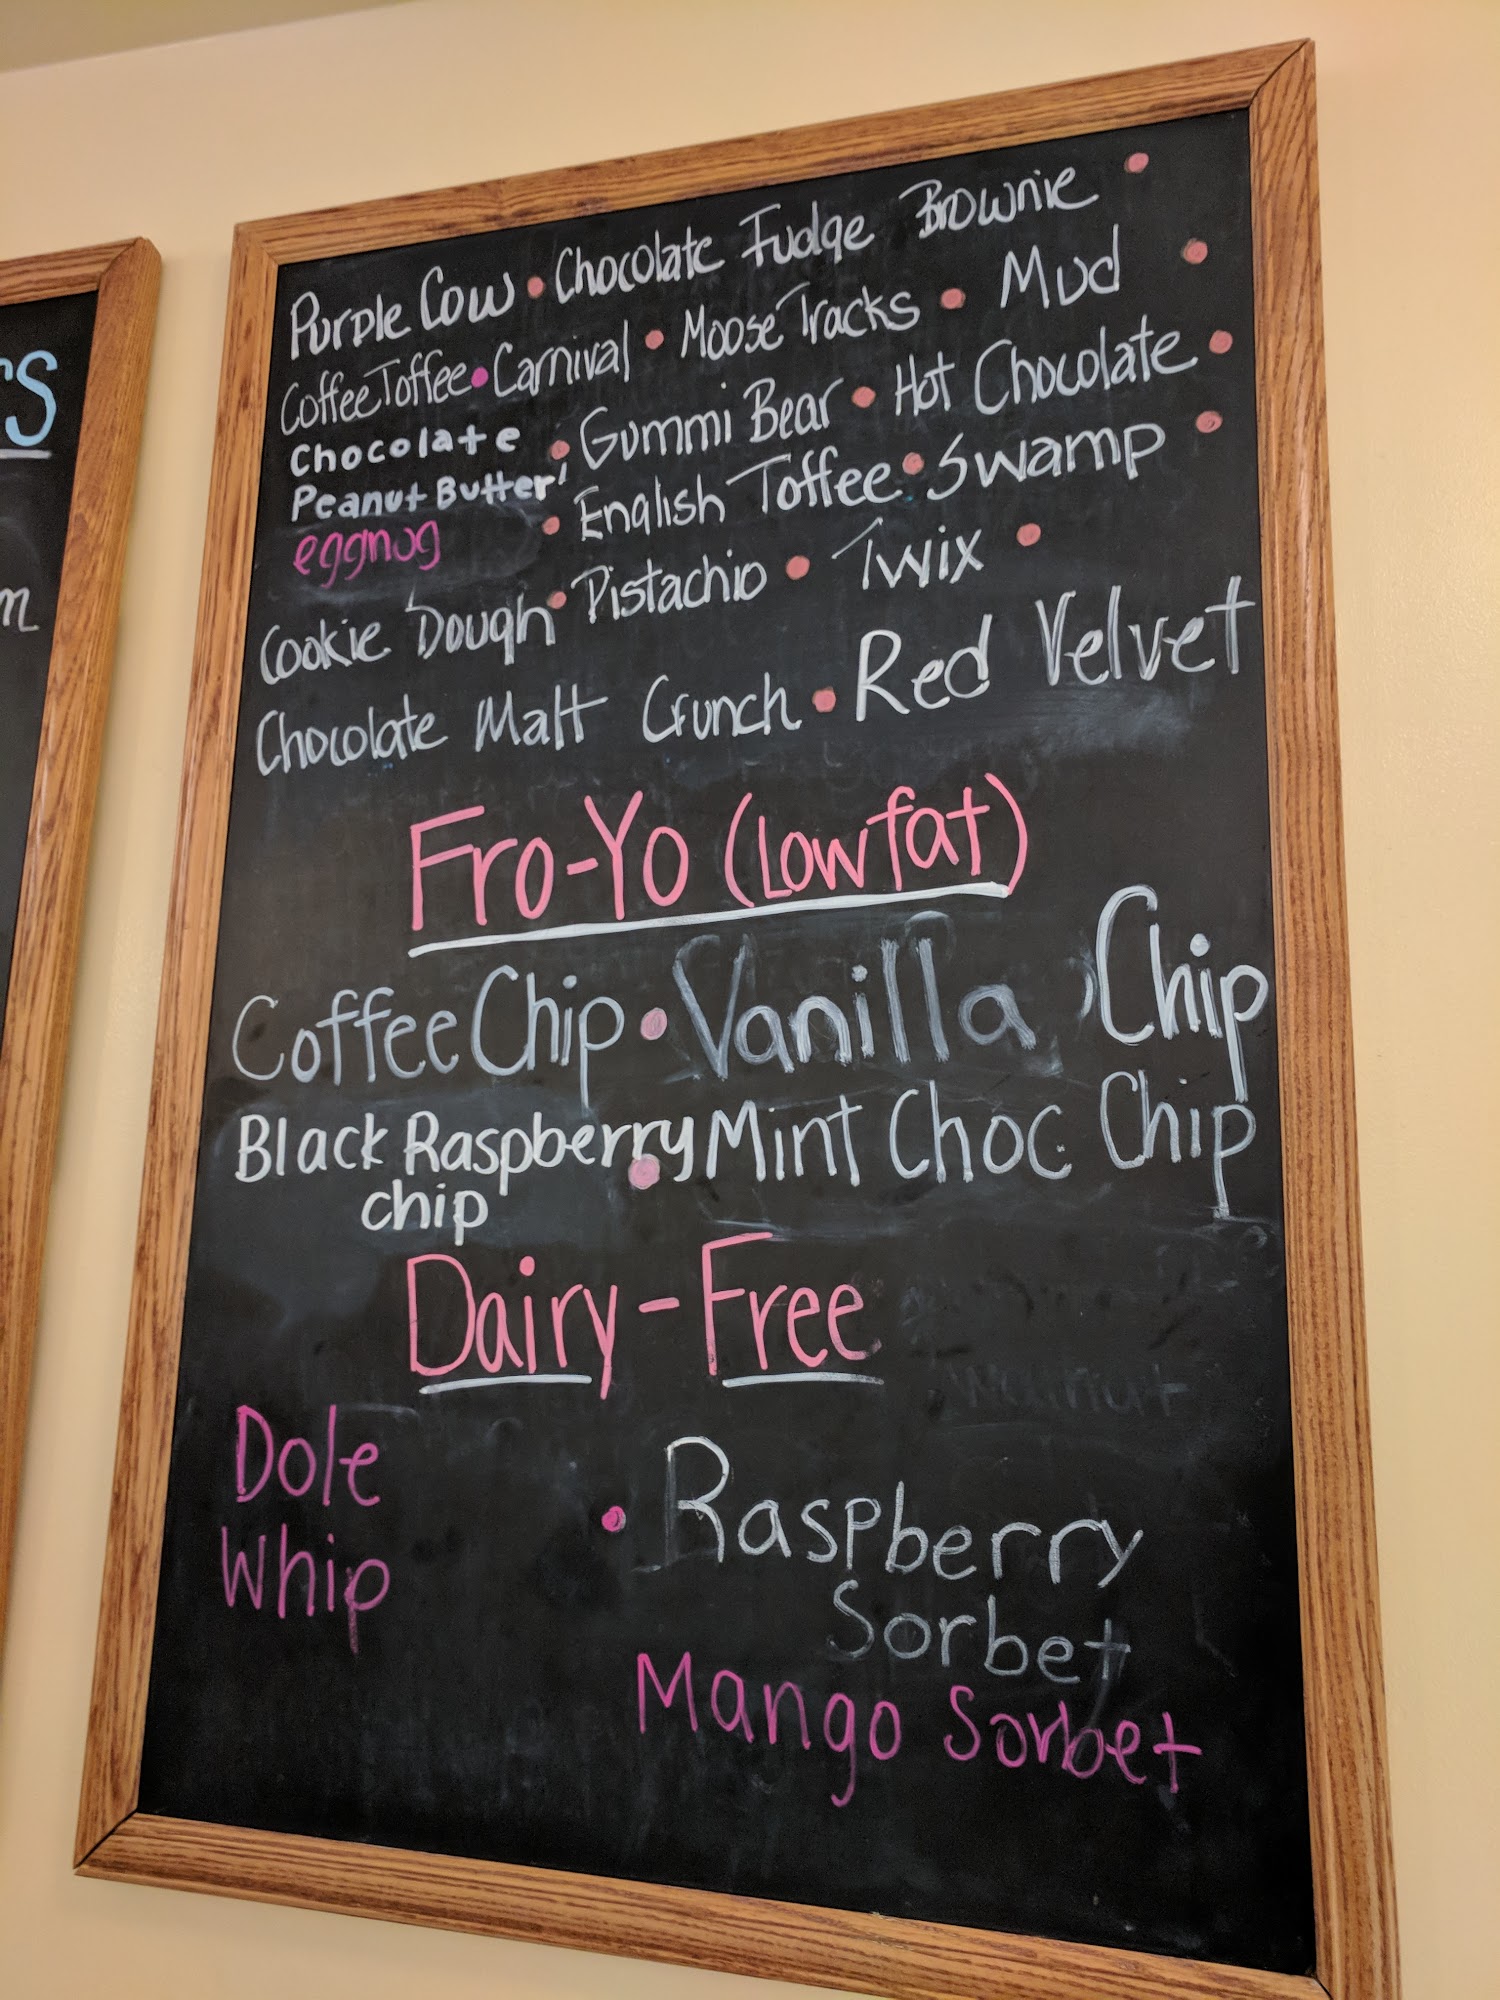 Purple Cow • Chocolate Fudge Brownie •
Coffee Toffee • Carnival • Moose Tracks • Mud •
Chocolate
Peanut Butter • Gummi Bear • Hot Chocolate •
eggnog • English Toffee • Swamp •
Cookie Dough • Pistachio • Twix •
Chocolate Malt Crunch • Red Velvet
Fro-Yo (Lowfat)
Coffee Chip • Vanilla Chip
Black Raspberry
chip • Mint Choc Chip
Dairy-Free
Dole
Whip • Raspberry
Sorbet
Mango Sorbet